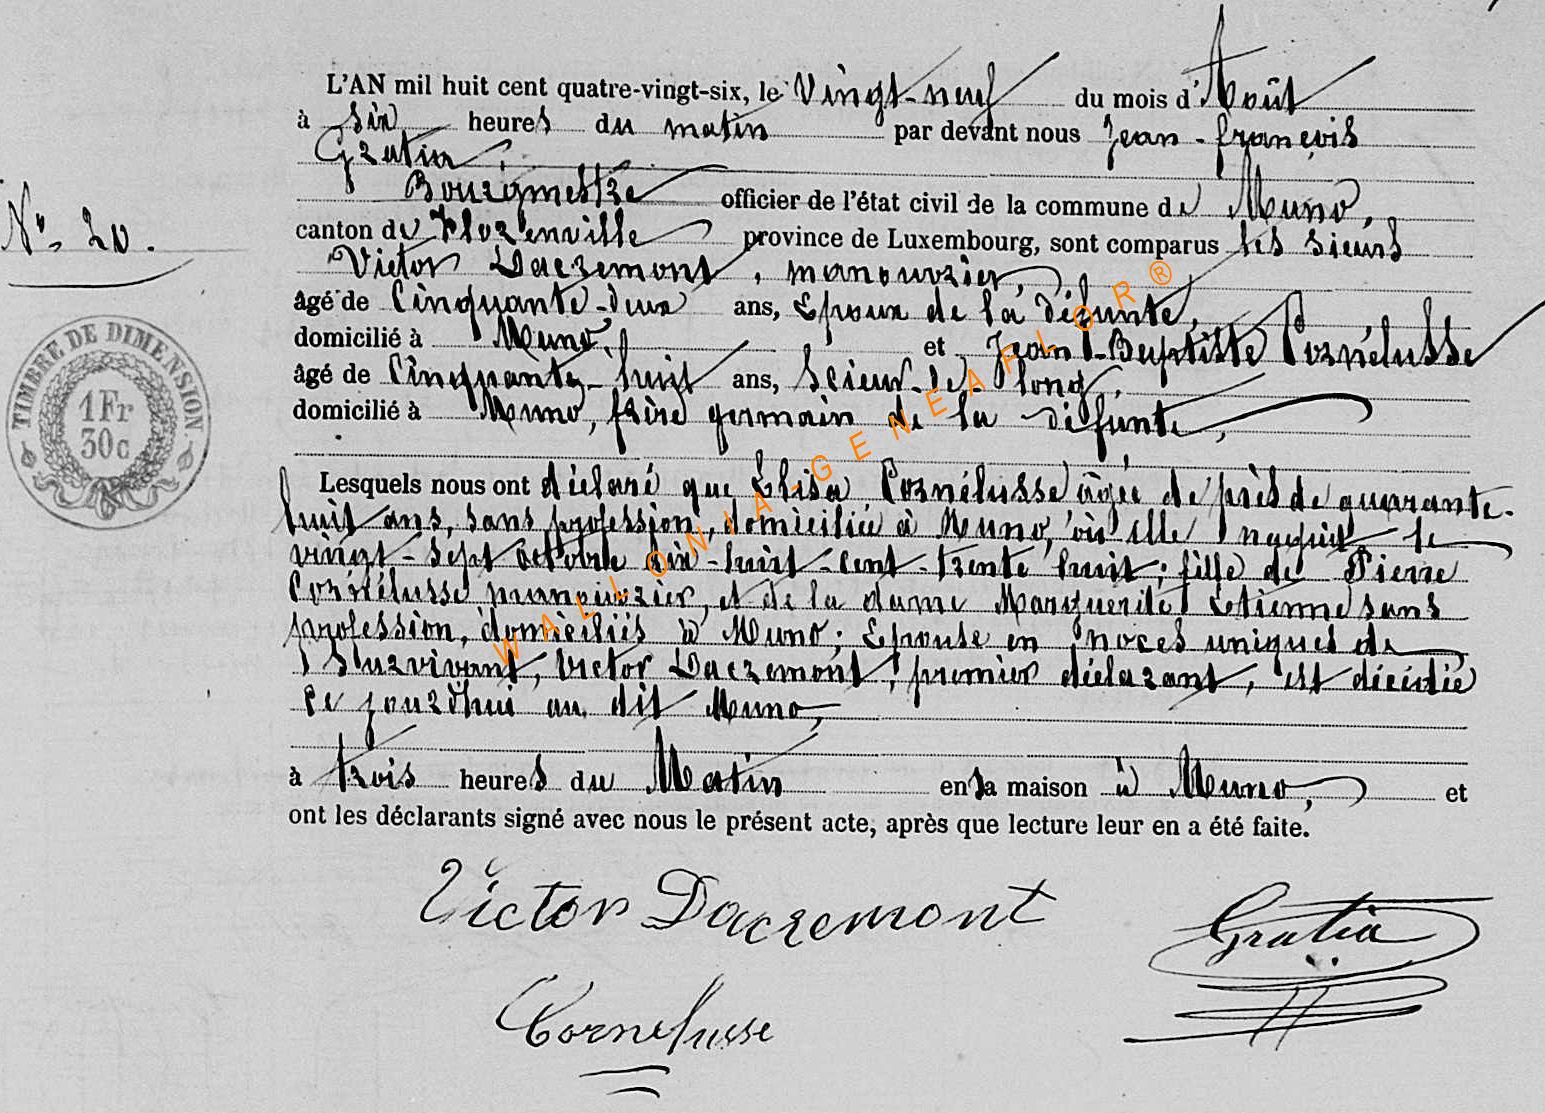 L'AN mil huit cent quatre-vingt-six, le Vingt-neuf du mois d'Août
à six heures du matin par devant nous Jean-françois
Gratia,
Bourgmestre officier de l'état civil de la commune de Muno,
canton de Florenville province de Luxembourg, sont comparus les sieurs
Victor Dacremont, manouvrier,
âgé de Cinquante-deux ans, Epoux de la défunte,
domicilié à Muno, et Jean-Baptiste Cornélusse
âgé de Cinquante-huit ans, Scieur-de-long,
domicilié à Muno, frère germain de la défunte,
Lesquels nous ont déclaré que Elisa Cornélusse âgée de près de quarante-
huit ans, sans profession, domiciliée à Muno, où elle naquit le
vingt-sept octobre dix-huit-cent-trente huit; fille de Pierre
Cornélusse manouvrier, et de la dame Marguerite Etienne sans
profession, domiciliés à Muno; Epouse en noces uniques de
Survivant, Victor Dacremont, premier déclarant, est décédée
ce jourd'hui au dit Muno,
à trois heures du Matin en sa maison à Muno, et
ont les déclarants signé avec nous le présent acte, après que lecture leur en a été faite.
N°. 20.
TIMBRE DE DIMENSION
1 Fr
30 c
Victor Dacremont
Gratia
Cornelusse
WALLONIA-GENEAFLOR®